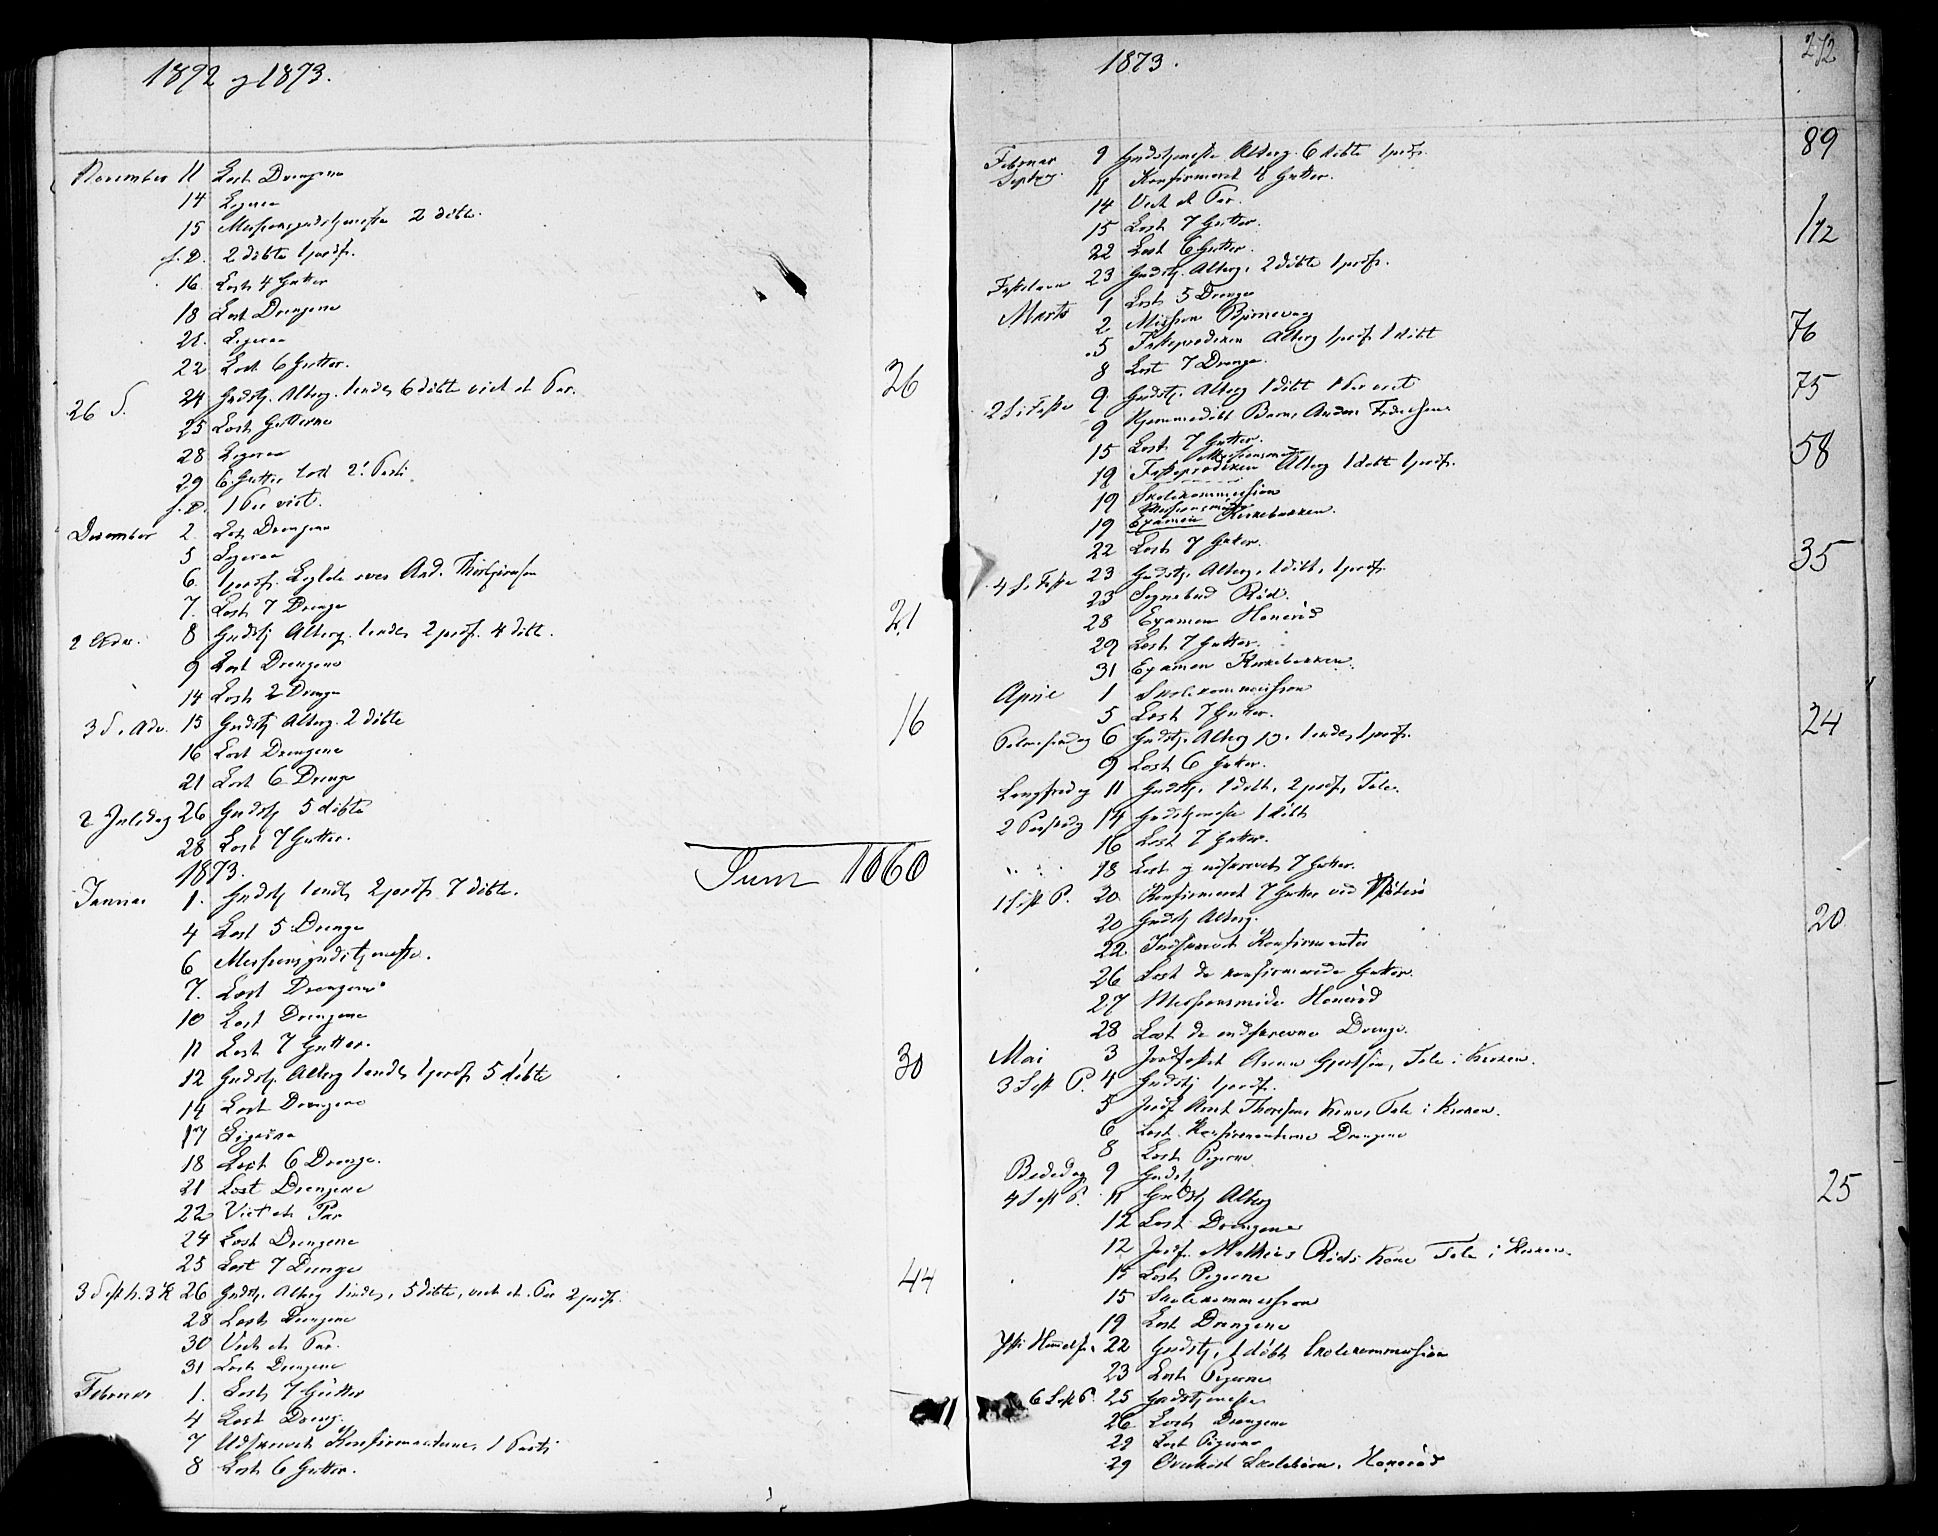 1872 og 1873.
November 11 Læst Drengene
14 Ligesaa
15 Missionsgudstjeneste 2 døbte.
s. D. 2 døbte 1 jordf.
16 Læst 4 Gutter
18 Læst Drengene
21. Ligesaa
22 Læst 6 Gutter.
26 S. 24 Gudstj. Alterg. 1 døbte viet et Par. 26
25 Læst Gutterne
28 Ligesaa
29 6 Gutter
s. D. 1 Par viet.
December 2. Læst Drengene
5 Ligesaa
6. 1 jordf. And.
7. Læst 7 Drenge
2 Adv. 8 Gudstj Alterg. 2 jordf. 4 døbt. 21
9 Læst Drengene
14 Læst 2 Drenge
3 S. Adv. 15 Gudstj Alterg. 2 døbte 16
16 Læst Drengene
21 Læst 6 Drenge
2 Juledag 26 Gudstj 5 døbte
28 Læst 7 Gutter.
1873. Sum 1060
Januar 1. Gudstj 2 jordf 7 døbte.
4 Læst 5 Drenge
6 Missionsgudstjeneste.
7. Læst Drengene
10 Læst Drengene
11 Læst 7 Gutter.
12 Gudstj. Alterg 1 jordf 5 døbte 30
14 Læst Drengene
17 Ligesaa
18 Læst 6 Drenge.
21 Læst Drengene
22 Viet et Par
24 Læst Drengene
25 Læst 7 Drenge
26 Gudstj. Alterg 5 døbte, viet et Par 2 jordf. 44
28 Læst Drengene
30 Viet et Par.
31 Læst Drengene
Februar 1. Læst 7 Gutter
4 Læst Dreng.
7 Udskrevet Konfirmanterne, 1 Parti
8 Læst 6 Gutter.
1873. 272
Februar 9 Gudstjeneste Alterg. 6 døbte 1 jordf. 89
11 Konfirmeret Gutter.
14 Viet et Par.
15 Læst 7 Gutter. 112
22 Læst 6 Gutter.
Fastelavn 23 Gudstj. Alterg. 2 døbte 1 jordf.
Marts 1 Læst 5 Drenge
2 Mission Bjørnevaag
5 Fasteprediken Alterg 1 jordf 1 døbt 76
8 Læst 7 Drenge.
2 S. i Faste 9 Gudstj. Alterg 1 døbt 75
9 Hjemmedøbt Barn,
15 Læst 7 Gutter. 58
19 Fasteprediken Alterg 1 døbt 1 jordf.
19 Skolekommission
19 Examen Kirkebakken.
22 Læst 7 Gutter. 35
4 S. i Faste 23 Gudstj. Alterg, 1 døbt, 1 jordf.
23 Sognebud Rød.
28 Examen Hanerød
29 Læst 7 Gutter.
31 Examen Kirkebakken.
April 1 Skolekommission
5 Læst 7 Gutter.
Palmesøndag 6 Gudstj. Alterg 1 jordf. 24
9 Læst 6 Gutter.
Langfredag 11 Gudstj. 1 døbt, 2 jordf, Tale.
2 Paaskedag 14 Gudstjeneste 1 døbt
16 Læst 7 Gutter.
18 Læst og udskrevet 7 Gutter.
20 Konfirmeret 7 Gutter ved
20 Gudstj Alterg. 20
22 Indskrevet Konfirmanter
26 Læst de konfirmerede Gutter.
27 Missionsmøde Hanerød
28 Læst de indskrevne Drenge.
Mai 3 Jordfæstet Tale i Kirken.
3 S. eft P. 4 Gudstj 1 jordf.
5 Jordf Kone, Tale i Kirken.
6 Læst Konfirmanterne Drengene
8 Læst Pigerne
Bededag 9 Gudstj
4 S eft P. 11 Gudstj Alterg 25
12 Læst Drengene
12 Jordf. Mathias Røds Kone Tale i Kirken.
15 Læst Pigerne
15 Skolekommission
19 Læst Drengene
22 Gudstj, 1 døbt Skolekommission
23 Læst Pigerne
6 S eft P. 25 Gudstjeneste
26 Læst Drengene
29 Læst Pigerne
29 Hanerød